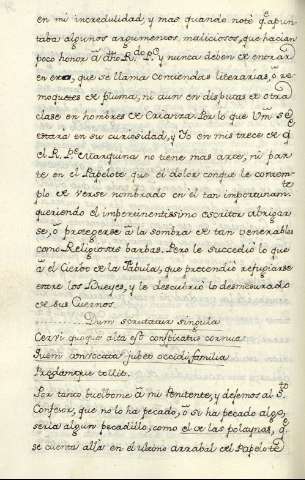 en mi incredulidad, y mas quando noté qe apun-
taba algunos argumentos maliciosos, que hacian
poco honor à dho Rdo Pe y nunca deben de entrar
en esa, que se llama contiendas literarias, ò re-
moquetes de pluma, ni aun en disputas de otra
clase en hombres de Crianza. Por lo que Vm se
estará en su curiosidad, y Yo en mis trece de q
el R. Pe Marquina no tiene mas arte, ni par-
te en el Papelote que el dolor con que le contem-
plo de verse nombrado en èl tan importunamte
queriendo el impertinentissimo escritor abrigar-
se, ò protegerse à la sombra de tan venerables
como Religiosas barbas. Pero le succedió lo que
à el Ciervo de la Fabula, que pretendió refugiarse
entre los Bueyes, y le descubrió lo desmesurado
de sus Cuernos.
......... Dum scrutatur singula
Cervi quoque alta est conspicatus cornua
Quem convocata jubet occidi familia
Prædamque tollit.
Por tanto buelbome à mi Penitente, y dejemos al Sto
Confesor, que no lo ha pecado, ò si ha pecado algo,
seria algun pecadillo, como el de las polaynas, q
se cuenta allá en el ultimo arrabal del Papelote